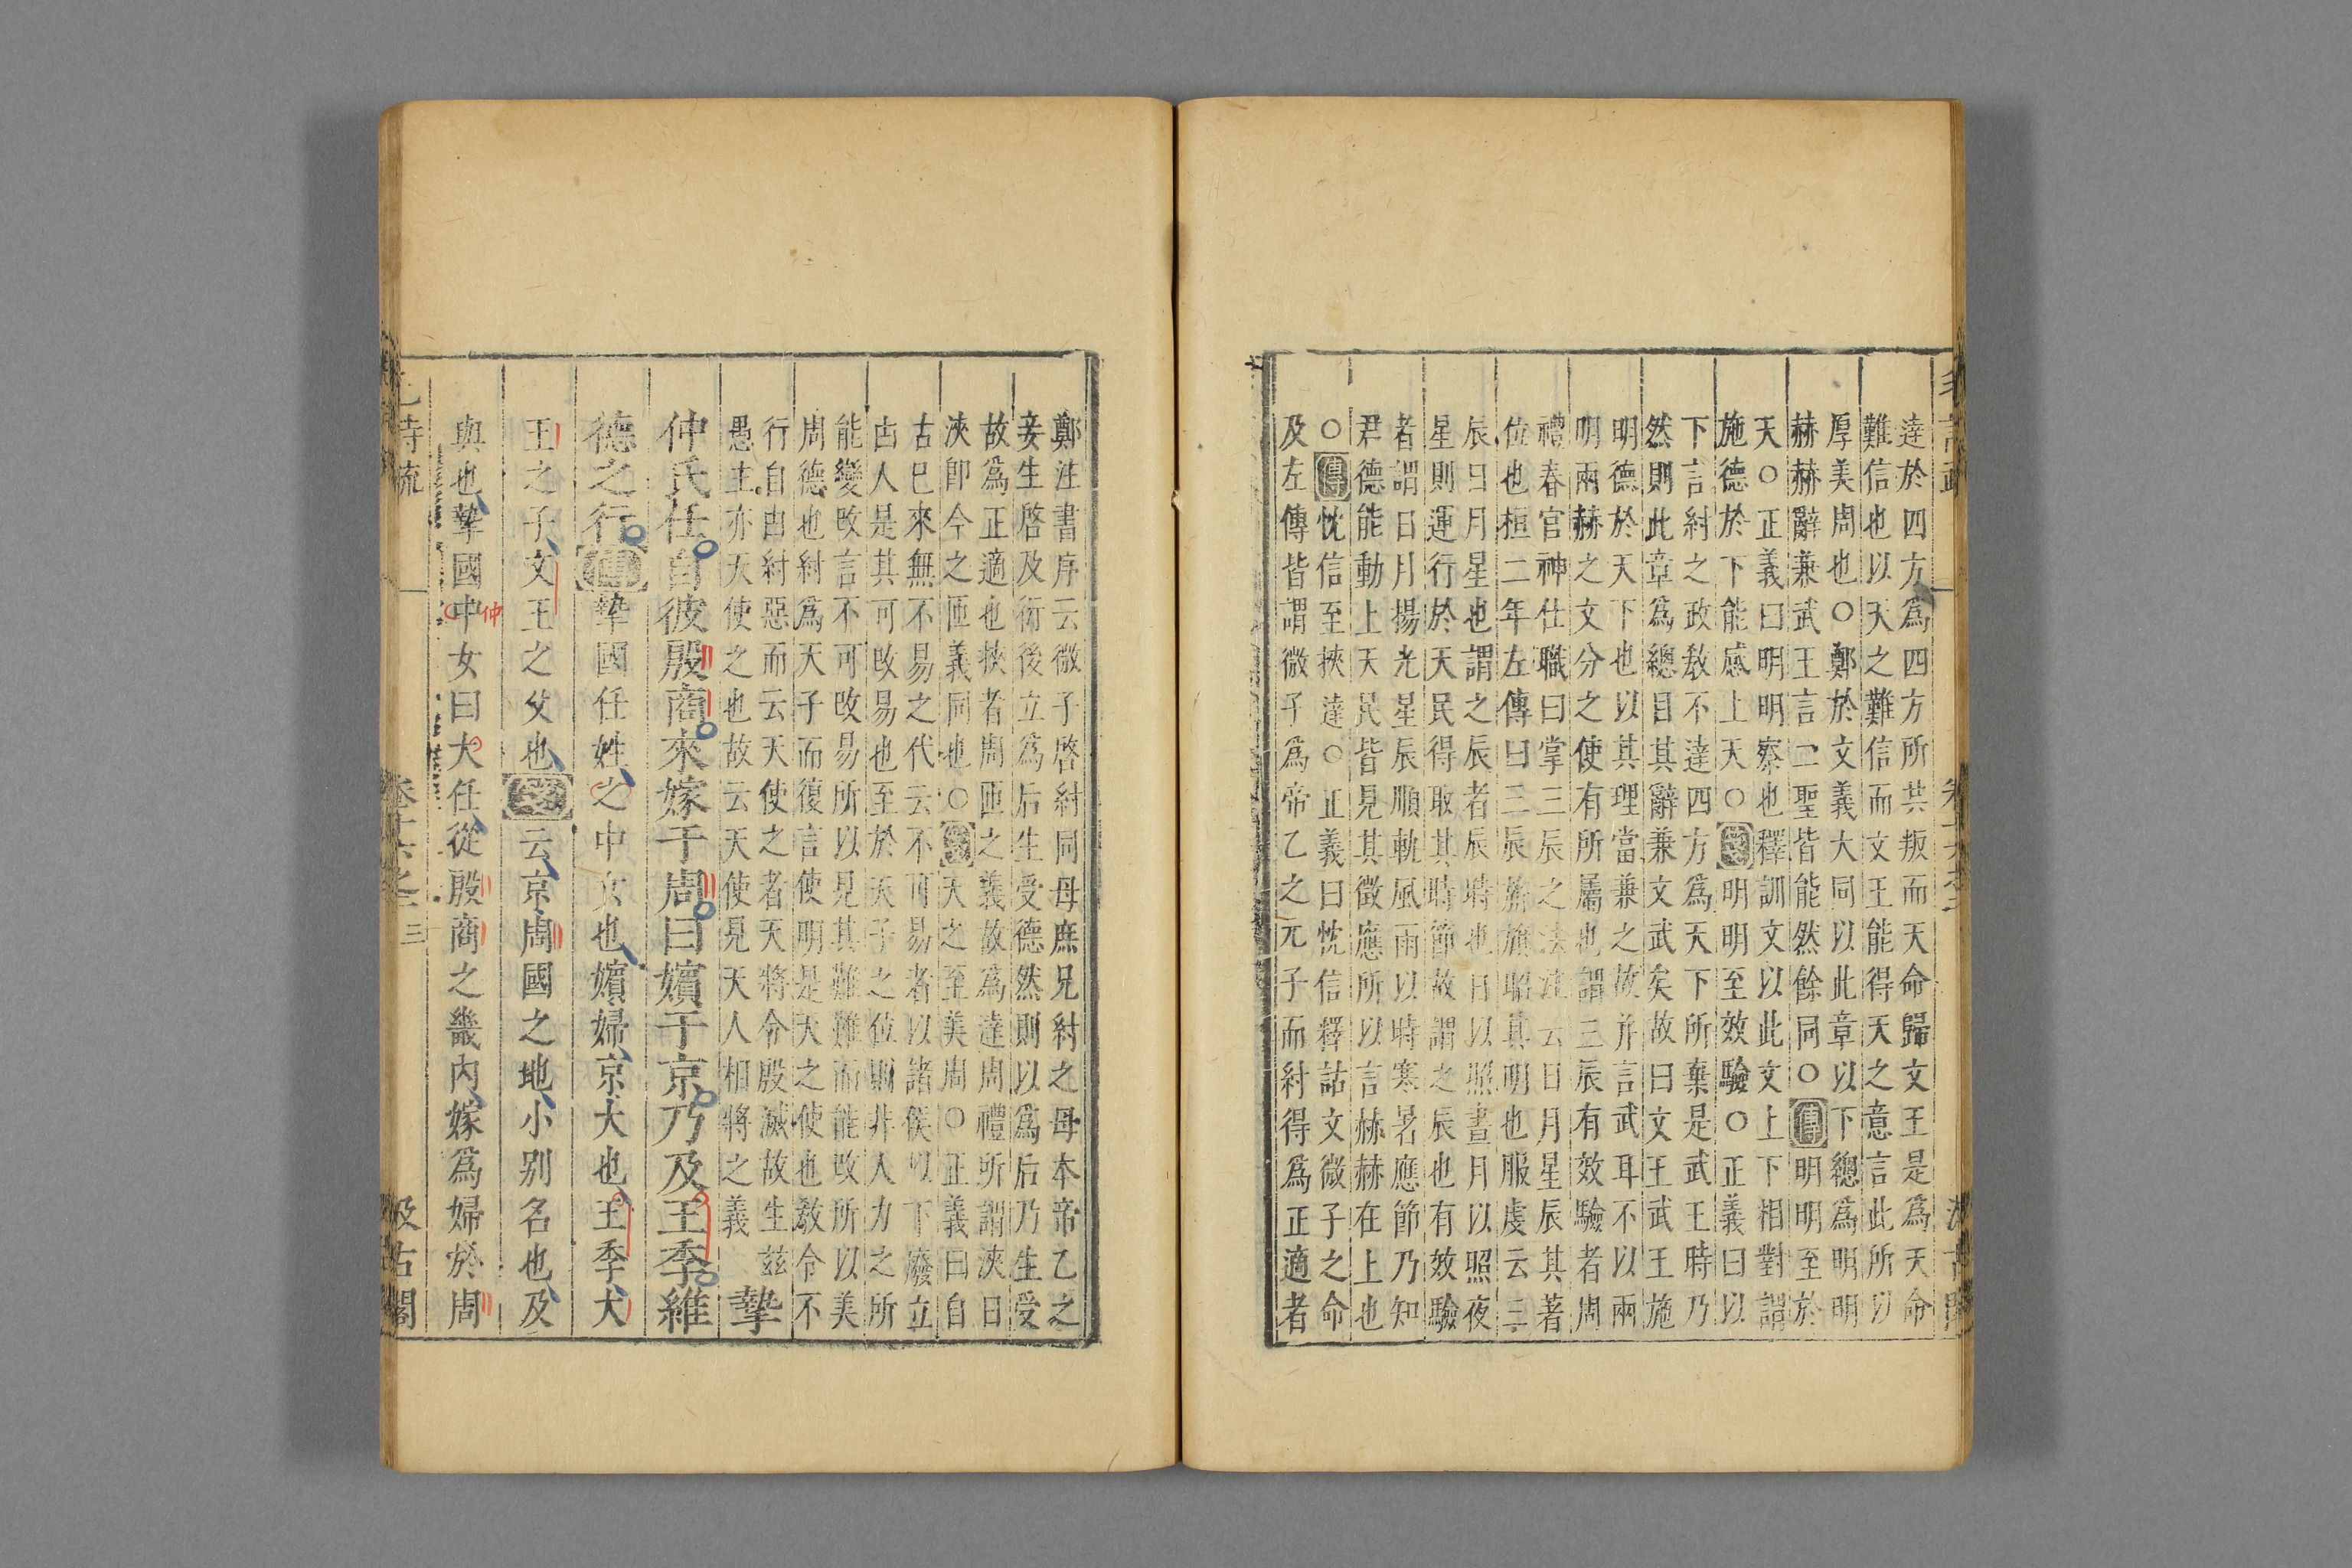 達於四方爲四方所共叛而天命歸文王是爲天命
難信也以天之難信而文王能得天之意言此所以
厚美周也○鄭於文義大同以此章以下總爲明明
赫赫辭兼武王言二聖皆能然餘同○傳明明至於
天○正義曰明明察也釋訓文以此文上下相對謂
施德於下能感上天○箋明明至效驗○正義曰以
下言紂之政敎不達四方爲天下所棄是武王時乃
然則此章爲總目其辭兼文武矣故曰文王武王施
明德於天下也以其理當兼之故并言武耳不以兩
明兩赫之文分之使有所屬也謂三辰有效驗者周
禮春官神仕職曰掌三辰之法注云日月星辰其著
位也桓二年左傳曰三辰旂旗昭其明也服虔云三
辰日月星也謂之辰者辰時也日以照晝月以照夜
星則運行於天民得取其時節故謂之辰也有效驗
者謂日月揚光星辰順軌風雨以時寒暑應節乃知
君德能動上天民皆見其徵應所以言赫赫在上也
○傳忱信至挾達○正義曰忱信釋詁文微子之命
及左傳皆謂微子爲帝乙之元子而紂得爲正適者
鄭注書序云微子啓紂同母庶兄紂之母本帝乙之
妾生啓及衍後立爲后生受德然則以爲后乃生受
故爲正適也挾者周匝之義故爲達周禮所謂浹日
浹卽今之匝義同也○箋天之至美周○正義曰自
古已來無不易之代云不可易者以諸侯以下廢立
由人是其可改易也至於天子之位則非人力之所
能變改言不可改易所以見其難難而能改所以美
周德也紂爲天子而復言使明是天之使也敎令不
行自由紂惡而云天使之者天將令殷滅故生玆
愚主亦天使之也故云天使見天人相將之義 摯
仲氏任自彼殷商來嫁于周曰嬪于京乃及王季維
德之行傳摯國任姓之中女也嬪婦京大也王季大
王之子文王之父也箋云京周國之地小別名也及
與也摯國中女曰大任從殷商之畿內嫁爲婦於周
仲
卷十六之二
三
汲古閣